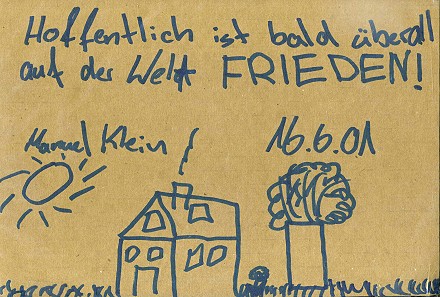 Hoffentlich ist bald überall
auf der Welt FRIEDEN!
Manuel Klein 16.6.01